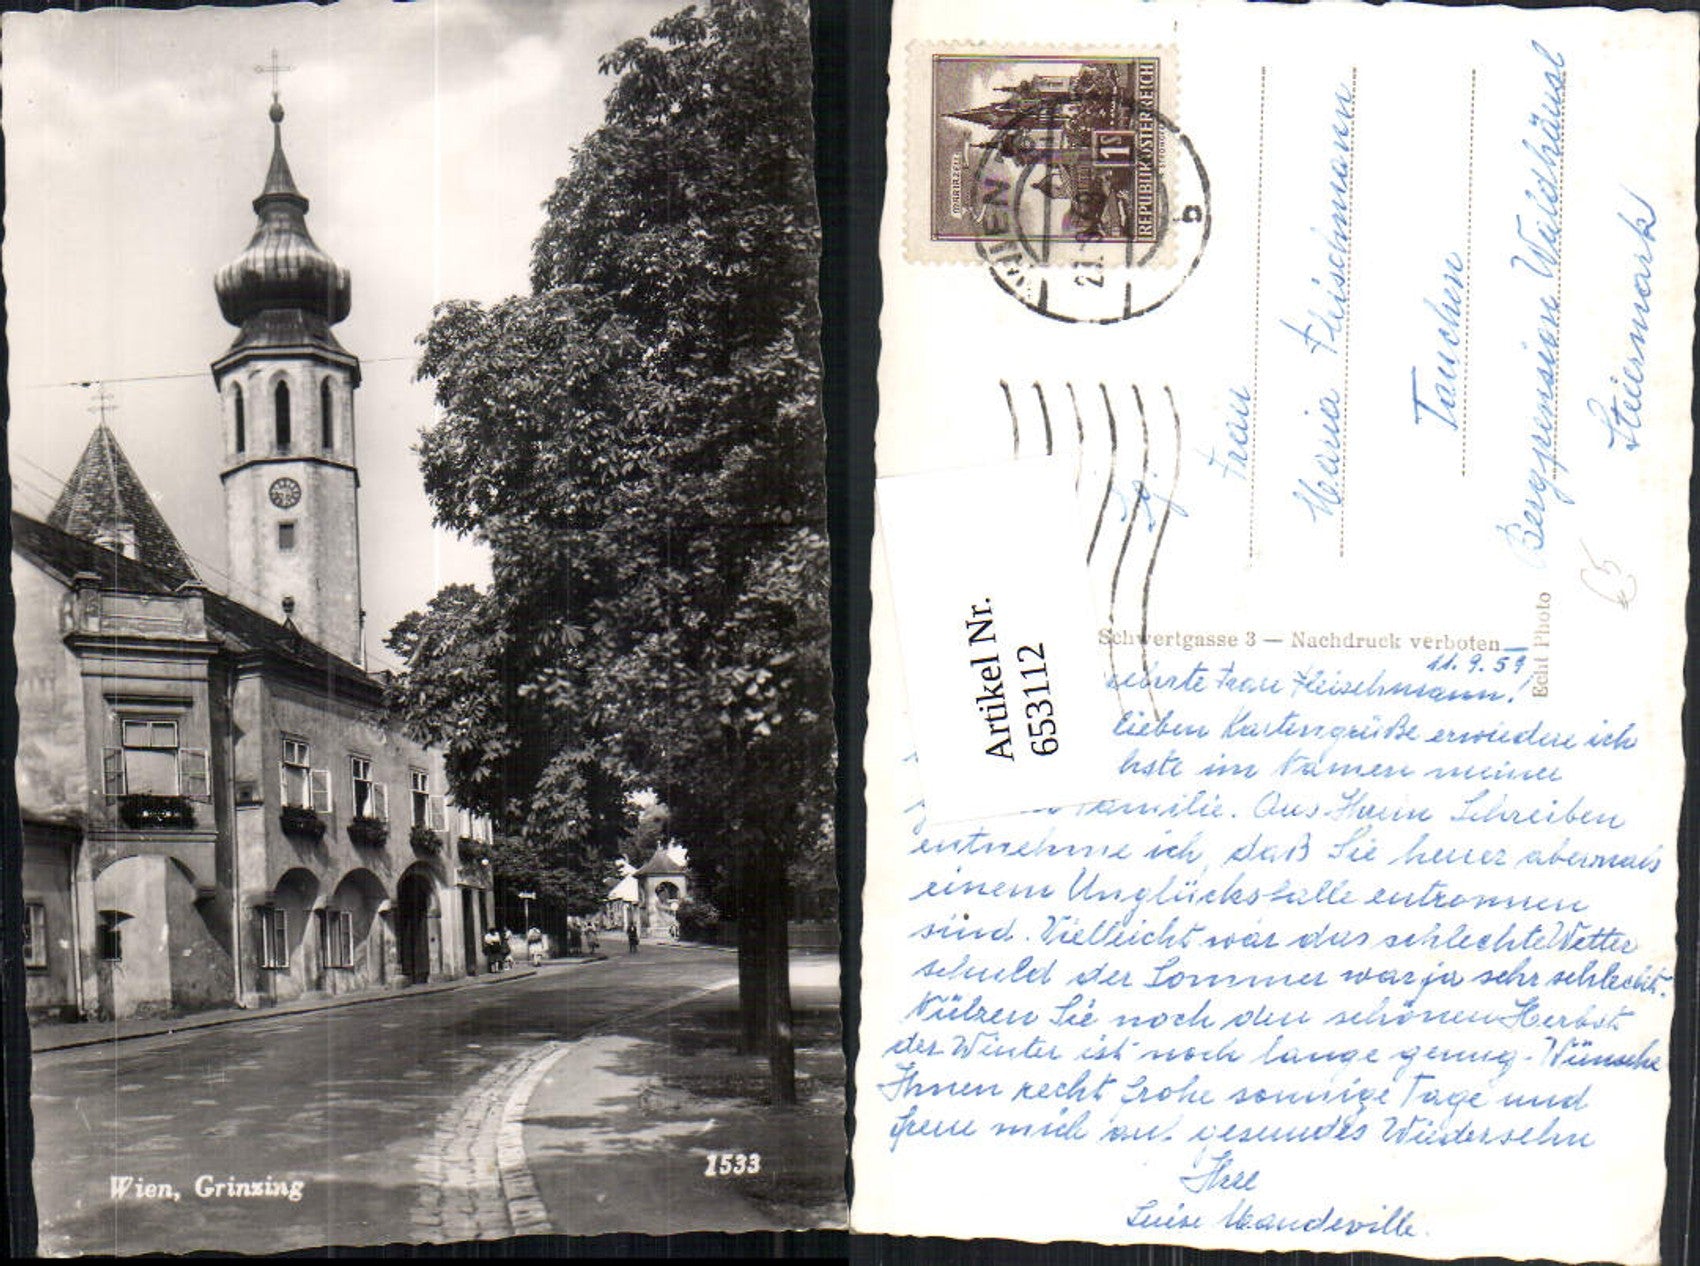 Wien, Grinzing
1533
REPUBLIK ÖSTERREICH
1S
MARIAZELL
WIEN
b
Frau
Maria Fleischmann
Tauchen
Bergpension Waldhäusl
Steiermark
Artikel Nr.
653112
Schwertgasse 3 — Nachdruck verboten
Echt Photo
11.9.59
Frau Fleischmann!
lieben Kartengrüße erwiedere ich
im Namen meiner
Familie. Aus Ihrem Schreiben
entnehme ich, daß Sie heuer abermals
einem Unglücksfalle entronnen
sind. Vielleicht war das schlechte Wetter
schuld der Sommer war ja sehr schlecht.
Nützen Sie noch den schönen Herbst
der Winter ist noch lange genug. Wünsche
Ihnen recht frohe sonnige Tage und
freue mich auf gesundes Wiedersehn
Ihre
Luise Mandeville.